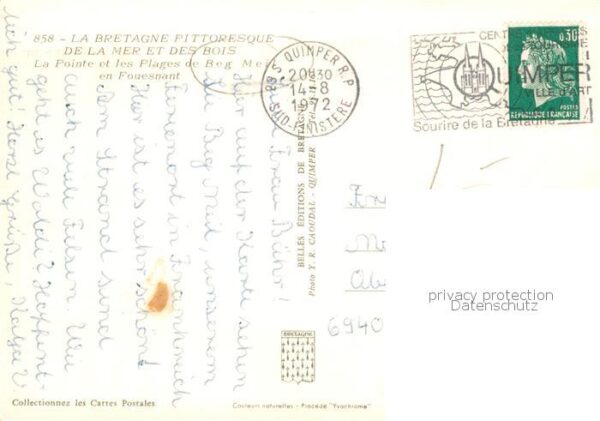 858 - LA BRETAGNE PITTORESQUE
DE LA MER ET DES BOIS
La Pointe et les Plages de Beg Meil
en Fouesnant
29 S QUIMPER R.P.
20H30
14-8
1972
SUD-FINISTERE
QUIMPER
VILLE D'ART
Sourire de la Bretagne
0,30
POSTES
REPUBLIQUE FRANÇAISE
Frau Bühr!
Hier auf der Karte sehen
Sie Beg Meil, unserem
Ferienort in Frankreich
Hier ist es sehr schön!
Am Strand sind
auch viele Felsen. Wie
geht es Waldi? Hoffent-
lich gut! Herzl. Grüße,
BELLES ÉDITIONS DE BRETAGNE
Photo Y. R. CAOUDAL - QUIMPER
6940
privacy protection
Datenschutz
BRETAGNE
Collectionnez les Cartes Postales
Couleurs naturelles - Procédé "Yvochrome"